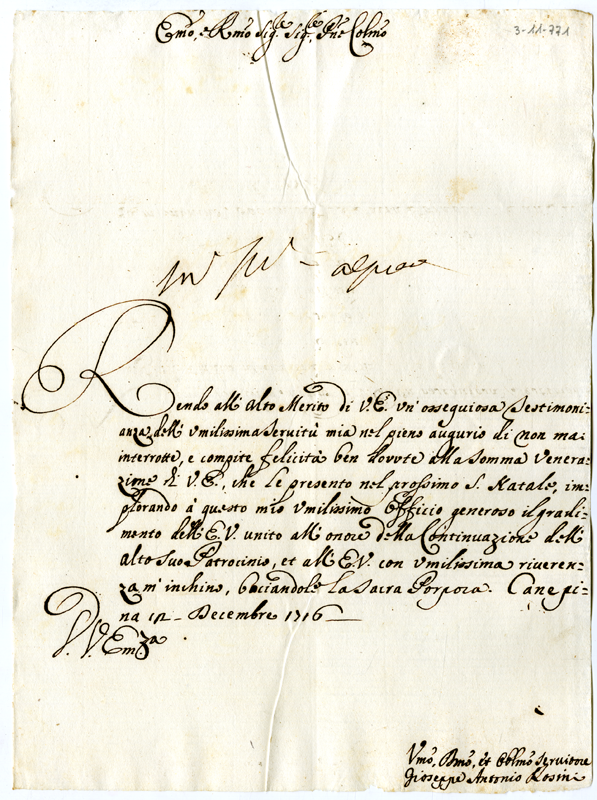 Emo, e Rmo Sigre. Sigre. Pne Colmo
3-11-771
Rendo all'alto Merito di V.E. un'ossequiosa testimoni=
anza dell'umilissima servitù mia nel pieno augurio di non ma=
interrotte, e compite felicità ben dovute alla somma venera=
zione di V.E., che le presento nel prossimo S. Natale, im=
plorando à questo mio umilissimo Officio generoso il gradi=
mento dell'E.V. unito all'onore della Continuazione dell'
alto suo Patrocinio, et all'E.V. con umilissima riveren=
za m'inchino, baciandole la Sacra Porpora. Canepi=
na 12 Decembre 1716
D. V. Emza
Vmo, Dmo, et Oblmo servitore
Gioseppe Antonio Rosini